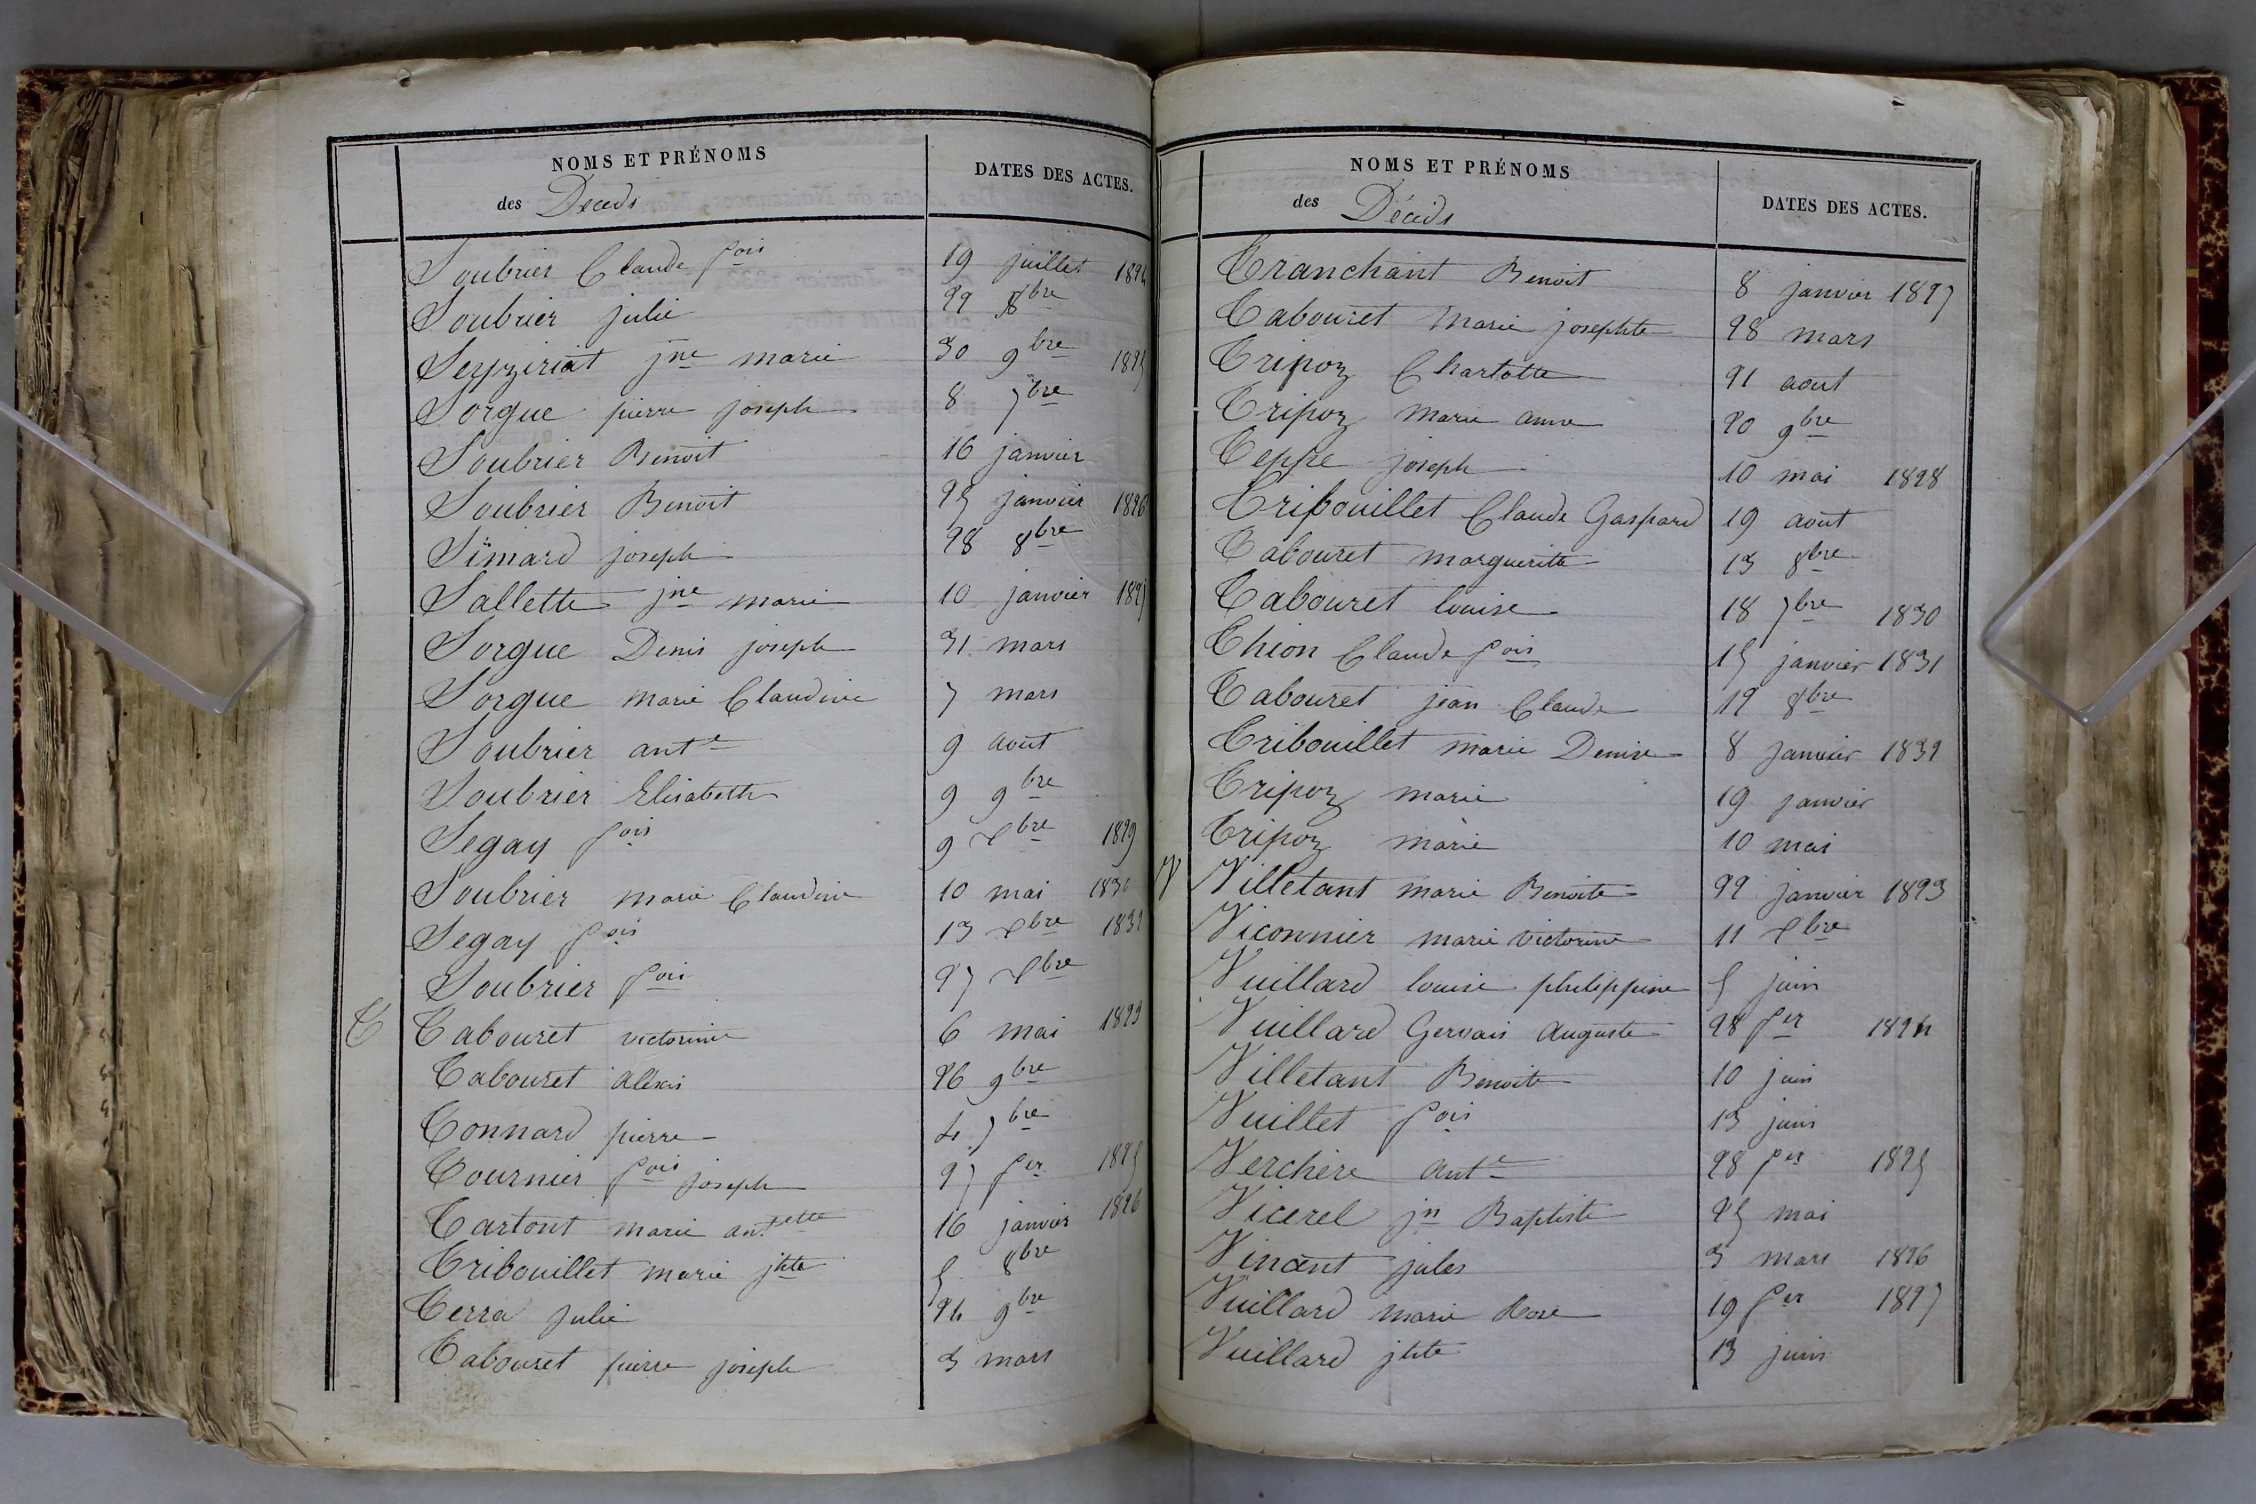 NOMS ET PRÉNOMS
des Décédés
DATES DES ACTES.
Soubrier Claude fois 19 juillet 1824
Soubrier julie 22 8bre
Seyziriat jne marie 30 9bre 1825
Sorgue pierre joseph 8 7bre
Soubrier Benoit 16 janvier
Soubrier Benoit 25 janvier 1826
Simard joseph 28 8bre
Sallette jne marie 10 janvier 1827
Sorgue Denis joseph 31 mars
Sorgue marie Claudine 7 mars
Soubrier ante 9 aout
Soubrier Elisabeth 9 9bre
Segay fois 9 Xbre 1829
Soubrier marie Claudine 10 mai 1830
Segay fois 13 Xbre 1832
Soubrier fois 27 Xbre
T Tabouret victorine 6 mai 1823
Tabouret alexis 26 9bre
Tonnard pierre 4 7bre
Tournier fois joseph 27 fer 1825
Tartout marie antette 16 janvier 1826
Tribouillet marie jhte 5 8bre
Terra julie 24 9bre
Tabouret pierre joseph 3 mars
NOMS ET PRÉNOMS
des Décédés
DATES DES ACTES.
Tranchant Benoit 8 janvier 1827
Tabouret marie josephte 28 mars
Tripoz Charlotte 21 aout
Tripoz marie anne 20 9bre
Teppe joseph 10 mai 1828
Tribouillet Claude Gaspard 19 aout
Tabouret marguerite 13 8bre
Tabouret louise 18 7bre 1830
Thion Claude fois 15 janvier 1831
Tabouret jean Claude 12 8bre
Tribouillet marie Denise 8 janvier 1832
Tripoz marie 19 janvier
Tripoz marie 10 mai
V Villetant marie Benoite 22 janvier 1823
Viconnier marie victorine 11 Xbre
Vuillard louise philippine 5 juin
Vuillard Gervais auguste 28 fer 1824
Villetant Benoite 10 juin
Vuillet fois 13 juin
Verchère ante 28 fer 1825
Vicerel jn Baptiste 25 mai
Vincent jules 3 mars 1826
Vuillard marie Rose 19 fer 1827
Vuillard jhte 13 juin